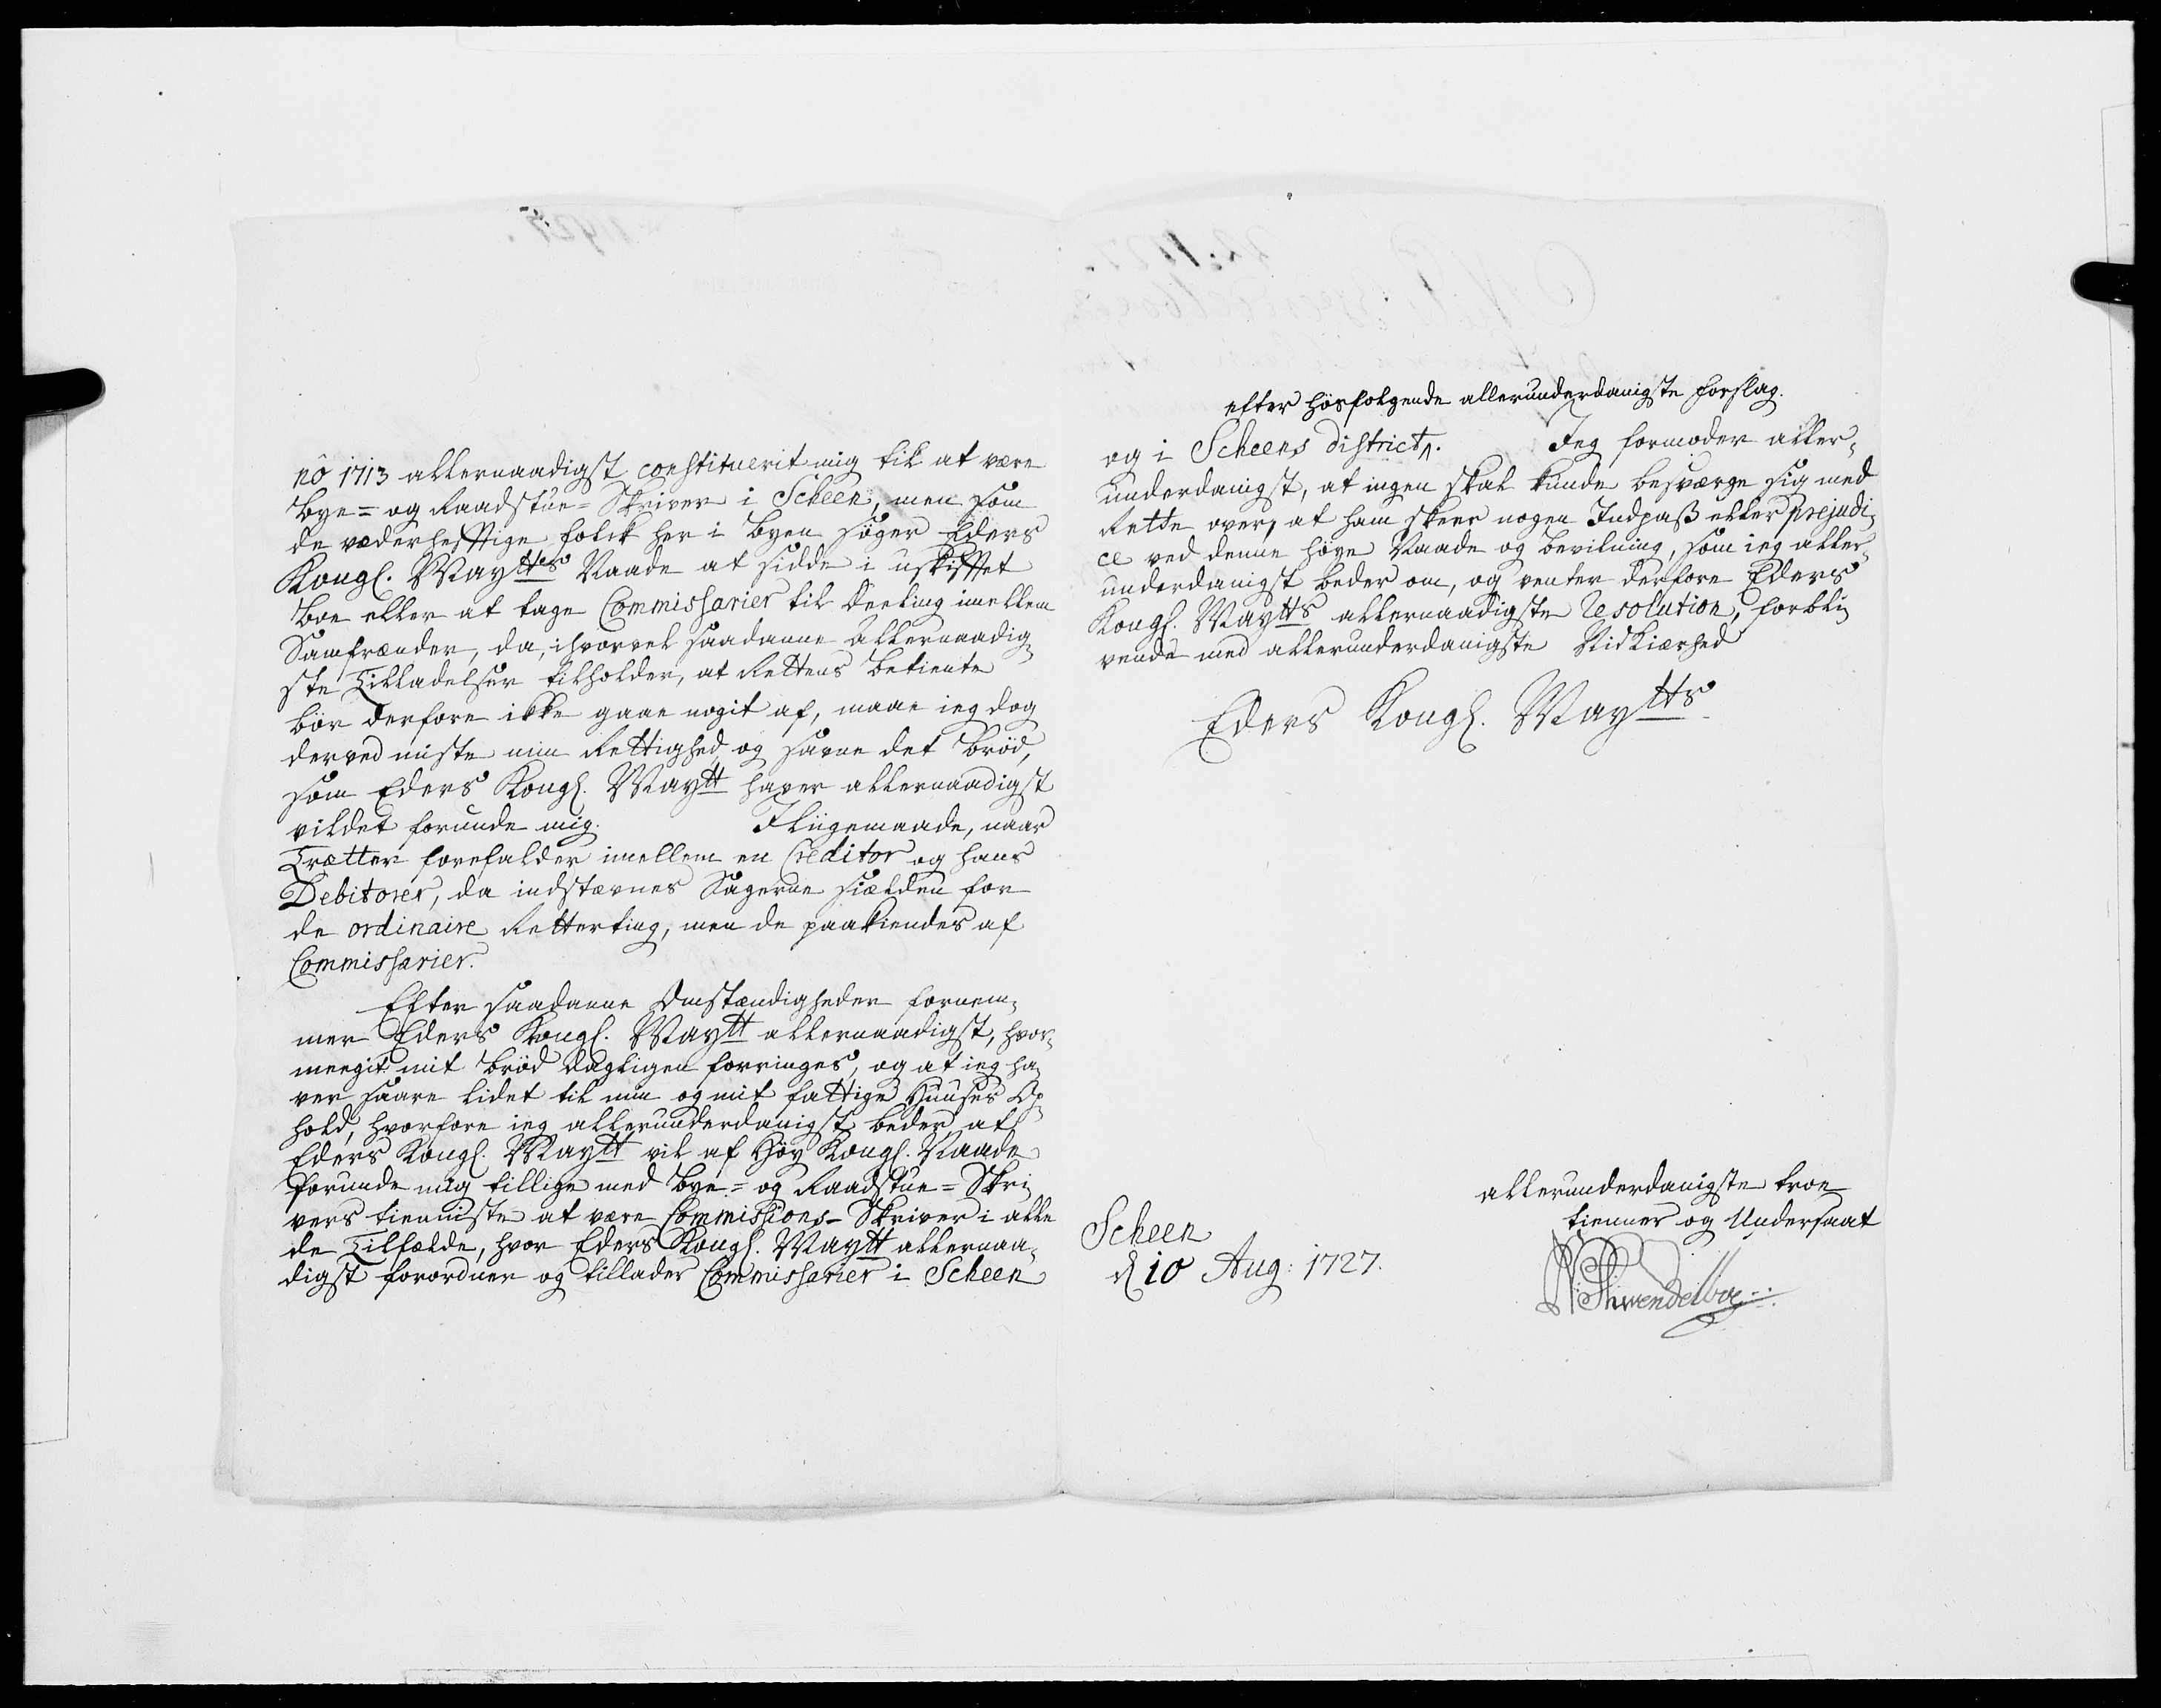 nô 1713 allernaadigst constituerit mig til at være
Bye= og Raadstue= Skriver i Scheen, men som
de vederhefftige folck her i byen søger Eders
Kongl. Maytts Naade at sidde i uskifftet
boe eller at tage Commissarier til deeling imellem
Samfrænder, da, ihvorvel saadanne allernaadig¬
ste Tilladelser tilholder, at Rettens betiente
bør derfore ikke gaae nogit af, maae ieg dog
derved miste min Rettighed, og savne det brød,
som Eders Kongl. Maytt haver allernaadigst
vildet forunde mig. I liigemaade, naar
Trætter forefalder imellem en Creditor og hans
Debitorer, da indstævnes Sagerne siælden for
de ordinaire Retterting, men de paakiendes af
Commissarier.
Efter saadanne Omstændigheder fornem¬
mer Eders Kongl. Maytt allernaadigst, hvor¬
meegit mit brød dagligen forringes, og at ieg ha¬
ver saare lidet til min og mit fattige Huuses Op¬
hold, hvorfore ieg allerunderdanigst beder, at
Eders Kongl. Maytt vil af Høy Kongl. Naade
forunde mig tillige med Bye= og Raadstue= Skri¬
vers tienniste at være Commissions- Skriver i alle
de Tilfælde, hvor Eders Kongl. Maytt allernaa¬
digst forordner og tillader Commissarier i Scheen
efter hosfølgende allerunderdanigste forslag.
og i Scheens district. Jeg formoder aller¬
underdanigst, at ingen skal kunde besværge sig med
Rette over, at ham skeer nogen Indpaß eller prejudi¬
ce ved denne høye Naade og bevilning, som ieg aller¬
underdanigst beder om, og venter derfore Eders
Kongl. Maytts allernaadigste Resolution, forbli¬
vende med allerunderdanigste Nidkiærhed
Eders Kongl. Maytts
allerunderdanigste troe
tienner og Undersaat
Scheen
d 10 Aug: 1727.